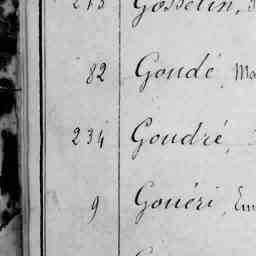 213 Gosselin,
82 Goudé, Ma
234 Goudré,
9 Gouéri, Em